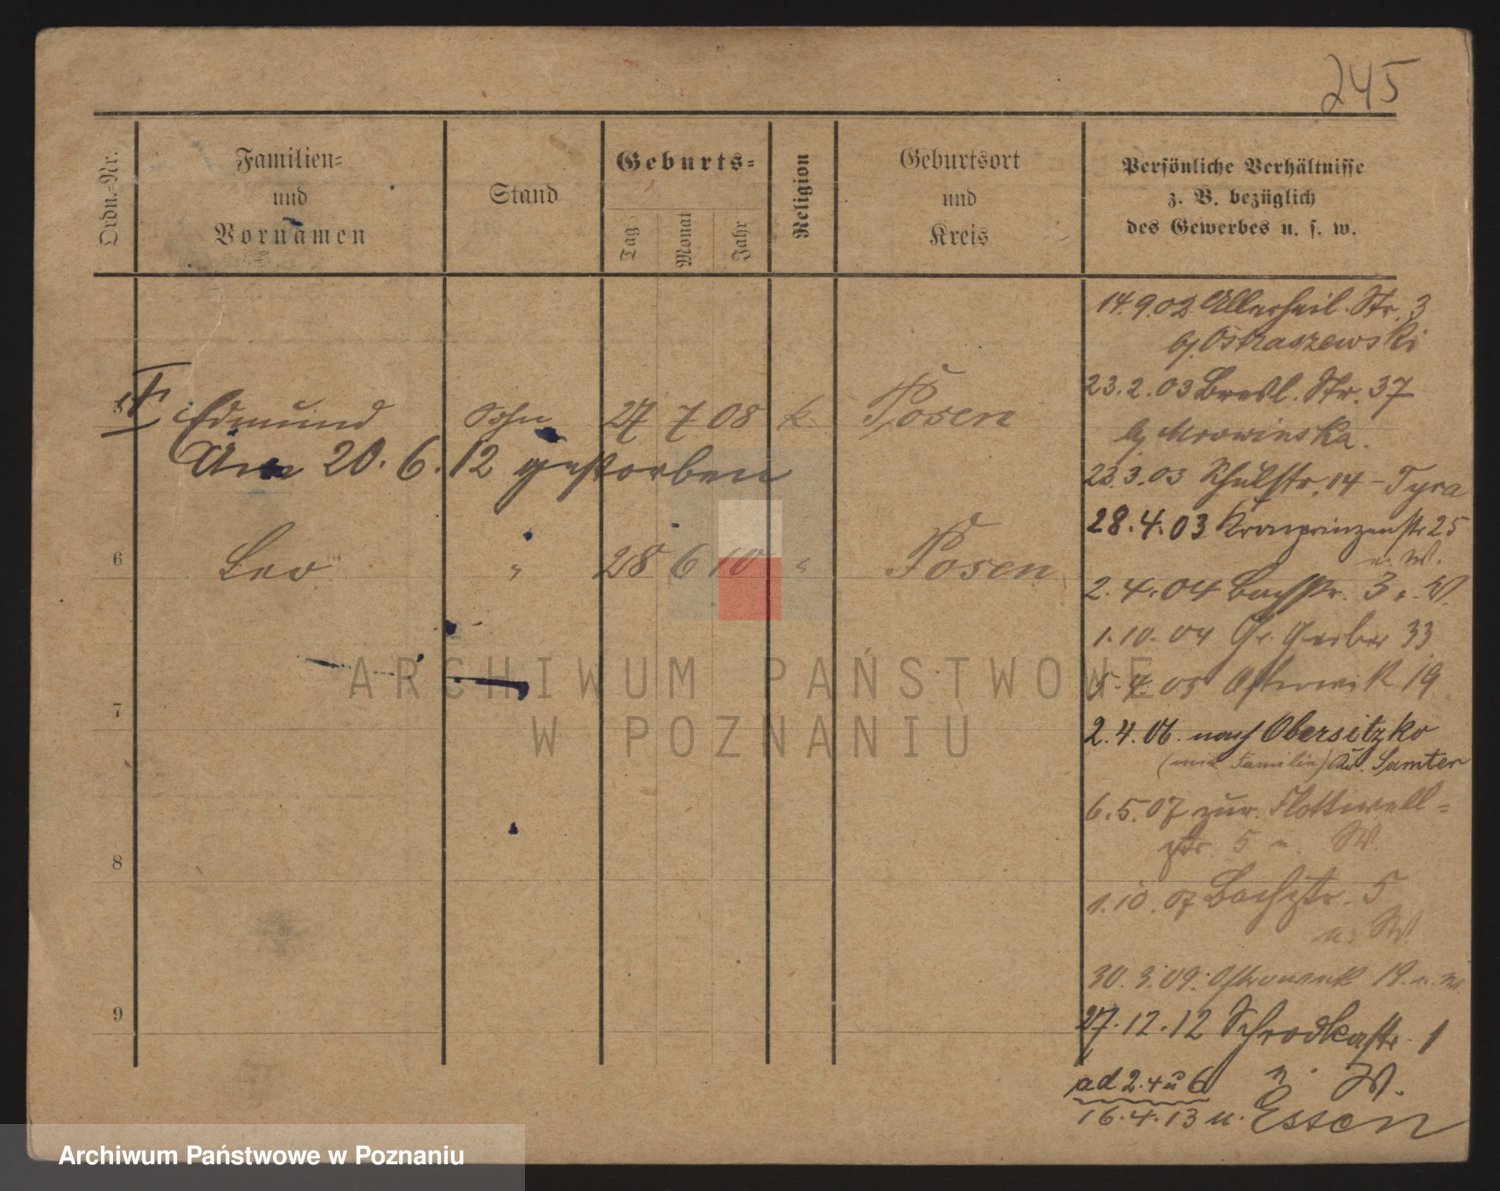 245
Ordn.-Nr.
Familien-
und
Vornamen
Stand
Geburts-
Tag
Monat
Jahr
Religion
Geburtsort
und
Kreis
Persönliche Verhältnisse
z. B. bezüglich
des Gewerbes u. s. w.
14.9.02 Allerheil. Str. 3
b/ Ostraszewski
23.2.03 Bresl. Str. 37
b/ Mrowinska.
5 Edmund Sohn 27 7 08 k Posen
Am 20. 6. 12 gestorben
23.3.03 Schulstr. 14 - Tyra
28.4.03 Kronprinzenstr 25
u. W.
6 Leo " 28 6 10 " Posen
2.4.04 Bachstr. 3 u. W.
1.10.04 Gr. Gerber 33
5.4.05 Ostrowek 19
7
2.4.06. nach Obersitzko
(mit Familie) Kr. Samter
6.5.07 zur. Flottwell-
str. 5 u. W
8
1.10.07 Bachstr. 5
u. W.
30.3.09. Ostrowek 19. u. W.
9
27.12.12 Schrodkastr. 1
u. W.
ad 2.4 u 6
16.4.13 n. Essen
ARCHIWUM PAŃSTWOWE
W POZNANIU
Archiwum Państwowe w Poznaniu